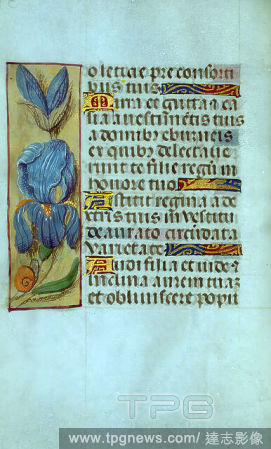 oletitie pre consorti
bus tuis
Mirra et gutta et ca
sia a vestimentis tuis
a domibus eburneis
ex quibus delectave
runt te filie regum in
honore tuo
Astitit regina a de
xtris tuis in vestitu
deaurato circundata
varietate
Audi filia et vide et
inclina aurem tuam
et obliviscere popu
TPG
www.tpgnews.com/達志影像